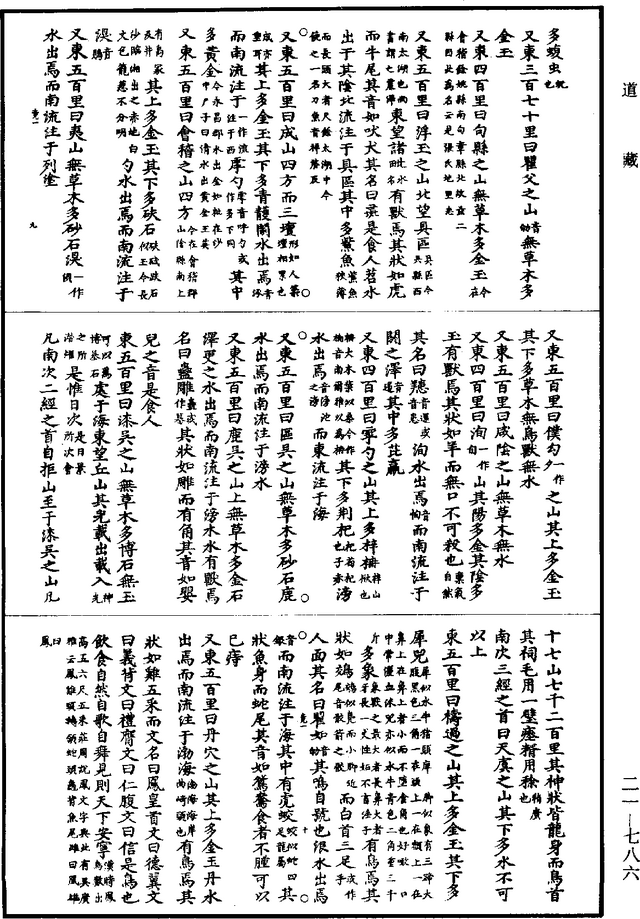 道藏
多蝮虫虺也
又東三百七十里曰瞿父之山音劬無草木多
金玉
又東四百里曰句縣之山無草木多金玉今在
會稽餘姚縣南句章縣北故此二縣因此爲名云見張氏地理志
又東五百里曰浮玉之山北望具區具區今吳縣西
南太湖也尚書謂之震澤東望諸毗水名有獸焉其狀如虎
而牛尾其音如吠犬其名曰彘是食人苕水
出于其陰北流注于具區其中多鮆魚鮆魚狹薄
而長頭大者尺餘太湖中今饒之一名刀魚音祚啓反
又東五百里曰成山四方而三壇形如人築壇相累也
成亦重耳其上多金玉其下多青雘閡水出焉音涿
而南流注于虖勺虖音呼勺或作多下同其中
多黃金今永昌郡水出金如糠在沙中尸子曰清水出黃金玉英
又東五百里曰會稽之山四方今在會稽郡山陰縣南上
有禹冢及井其上多金玉其下多砆石砆武夫石似玉今長
沙臨湘出之赤地白文色蘢葱不分明勺水出焉而南流注于
湨音鵙
又東五百里曰夷山無草木多砂石湨一作浿
水出焉而南流注于列塗
竟一 九
又東五百里曰僕勾一作夕之山其上多金玉
其下多草木無鳥獸無水
又東五百里曰咸陰之山無草木無水
又東四百里曰洵一作旬山其陽多金其陰多
玉有獸焉其狀如羊而無口不可殺也稟氣自然
其名曰䍺音還或音患洵水出焉音詢而南流注于
閼之澤音遏其中多茈蠃
又東四百里曰虖勺之山其上多梓柟梓山楸也
柟大木葉似桑今作楠音南爾雅以爲柟其下多荆杞杞苟杞也子赤滂
水出焉音滂沱之滂而東流注于海
又東五百里曰區吳之山無草木多砂石鹿
水出焉而南流注于滂水
又東五百里曰鹿吳之山上無草木多金石
澤更之水出焉而南流注于滂水水有獸焉
名曰蠱雕蠱或作纂其狀如雕而有角其音如嬰
兒之音是食人
東五百里曰漆吳之山無草木多博石無玉
可以爲博棊石處于海東望丘山其光載出載入神光
之所潛燿是惟日次是日景之所次會
凡南次二經之首自柜山至于漆吳之山凡
十七山七千二百里其神狀皆龍身而鳥首
其祠毛用一璧瘞糈用稌稻穬也
南次三經之首曰天虞之山其下多水不可
以上
東五百里曰禱過之山其上多金玉其下多
犀兕犀似水牛豬頭庳脚脚似象有三蹄大腹黑色三角一在頂上一在額上一在
鼻上在鼻上者小而不墮食角也好噉棘口中常灑血沫兕亦似水牛青色一角重三千
斤多象象獸之最大者長鼻大者牙長一丈性妬不畜淫子有鳥焉其
狀如鵁鵁似鳧而小脚近尾音骹箭之骹而白首三足或作手
人面其名曰瞿如音劬其鳴自號也泿水出焉
音銀而南流注于海其中有虎蛟蛟似蛇四足龍屬其
狀魚身而蛇尾其音如鴛鴦食者不腫可以
已痔
又東五百里曰丹穴之山其上多金玉丹水
出焉而南流注于渤海渤海海岸曲崎頭也有鳥焉其
狀如雞五采而文名曰鳳皇首文曰德翼文
曰義背文曰禮膺文曰仁腹文曰信是鳥也
飲食自然自歌自舞見則天下安寧漢時鳳鳥數出
高五六尺五采莊周說鳳文字與此有異廣雅云鳳雞頭燕頷蛇頸龜背魚尾雌曰凰雄曰鳳
竟一 十
二一—七八六